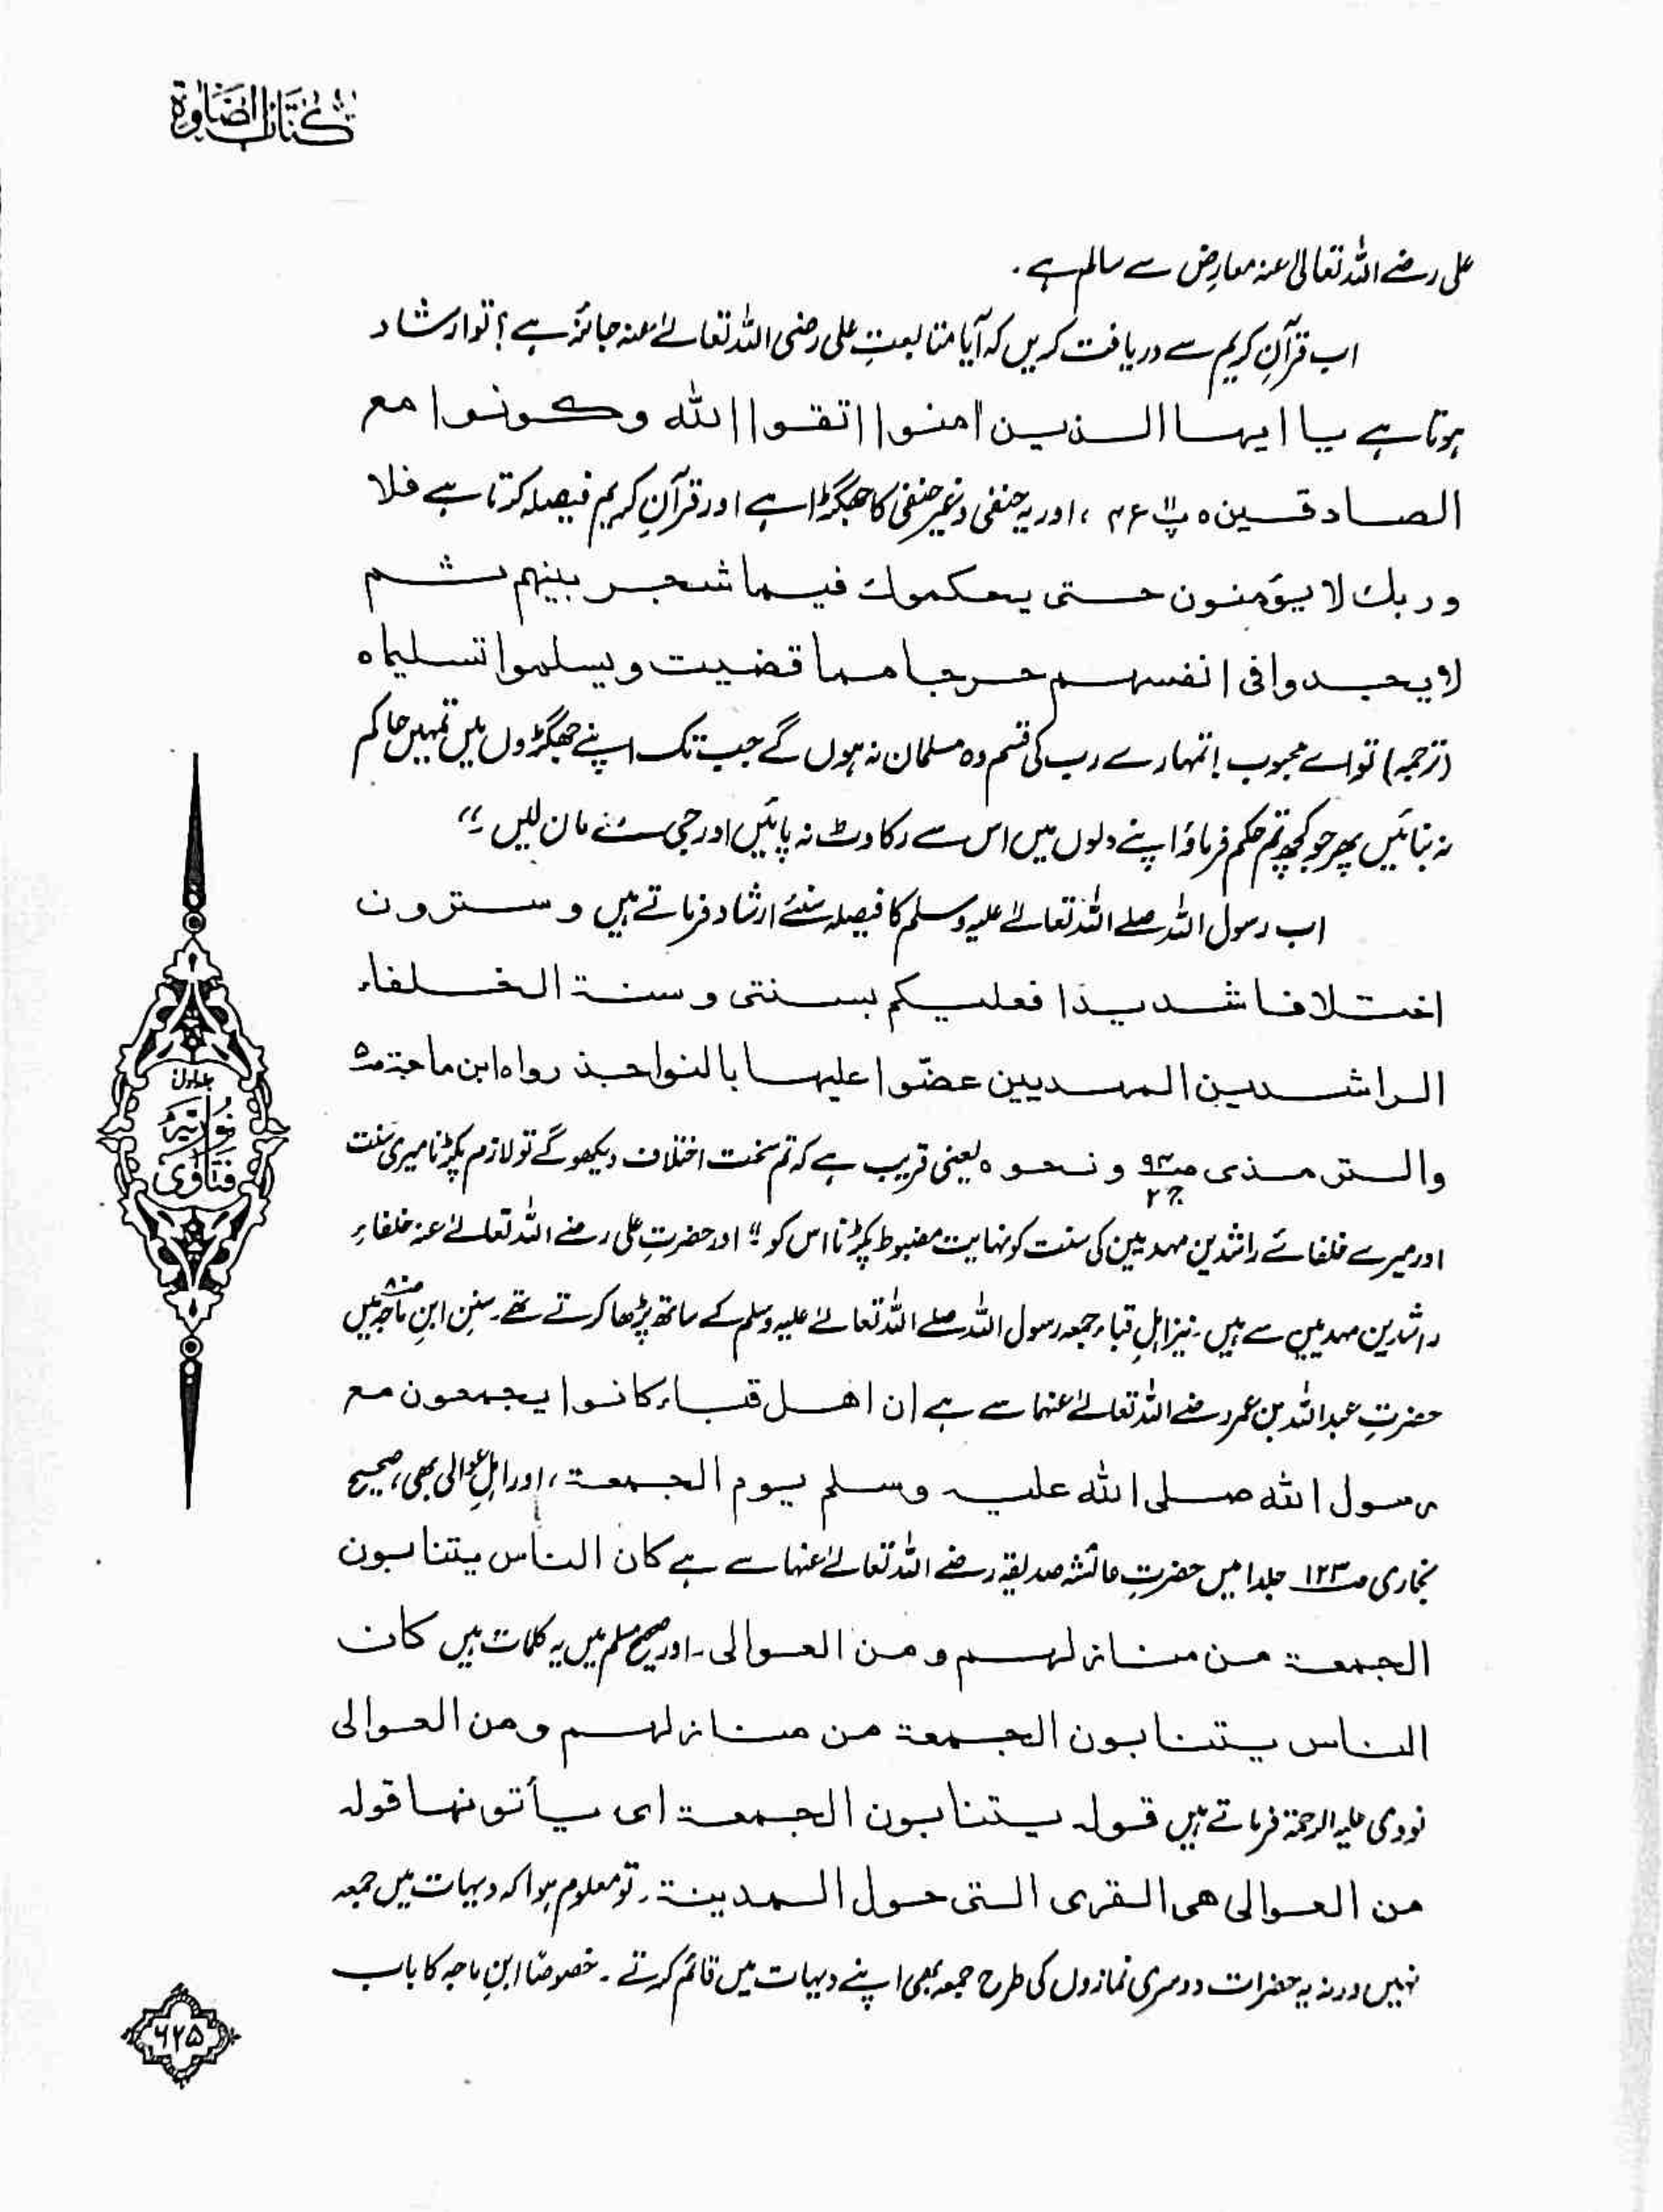 کتاب الصلوٰة
علی رضے اللہ تعالیٰ عنہ معارِض سے سالم ہے۔
اب قرآنِ کریم سے دریافت کریں کہ آیا متابعتِ علی رضی اللہ تعالےٰ عنہ جائز ہے؟ تو ارشاد
ہوتا ہے یا ایہا الذین امنوا اتقوا اللہ وکونوا مع
الصادقین ہ پ۱۱ ع۴ ، اور یہ حنفی و غیر حنفی کا جھگڑا ہے اور قرآنِ کریم فیصلہ کرتا ہے فلا
وربك لا یؤمنون حتی یحکموك فیما شجر بینہم ثم
لا یجدوا فی انفسہم حرجا مما قضیت ویسلموا تسلیما ہ
(ترجمہ) تو اے محبوب! تمہارے رب کی قسم وہ مسلمان نہ ہوں گے جب تک اپنے جھگڑوں میں تمہیں حاکم
نہ بنائیں پھر جو کچھ تم حکم فرماؤ اپنے دلوں میں اس سے رکاوٹ نہ پائیں اور جی سے مان لیں ۔"
اب رسول اللہ صلے اللہ تعالےٰ علیہ وسلم کا فیصلہ سنئے ارشاد فرماتے ہیں و سترون
اختلافا شدیدا فعلیکم بسنتی و سنۃ الخلفاء
الراشدین المہدیین عضّوا علیہا بالنواجذ رواہ ابن ماجۃ ص۵
والترمذی ص۹۲ ج۲ ونحوہ یعنی قریب ہے کہ تم سخت اختلاف دیکھو گے تو لازم پکڑنا میری سنت
اور میرے خلفائے راشدین مہدیین کی سنت کو نہایت مضبوط پکڑنا اس کو" اور حضرتِ علی رضے اللہ تعالےٰ عنہ خلفاءِ
راشدین مہدیین سے ہیں۔ نیز اہلِ قباء جمعہ رسول اللہ صلے اللہ تعالےٰ علیہ وسلم کے ساتھ پڑھا کرتے تھے۔ سنن ابنِ ماجہ ص۸۰ میں
حضرتِ عبداللہ بن عمر رضے اللہ تعالےٰ عنہما سے ہے ان اھل قباء کانوا یجمعون مع
رسول اللہ صلی اللہ علیہ وسلم یوم الجمعۃ، اور اہلِ عوالی بھی، صحیح
بخاری ص۱۲۳ جلد۱ میں حضرتِ عائشہ صدیقہ رضے اللہ تعالےٰ عنہا سے ہے کان الناس یتنابون
الجمعۃ من منازلہم و من العوالی۔ اور صحیح مسلم میں یہ کلمات ہیں کان
الناس یتنابون الجمعۃ من منازلہم ومن العوالی
نووی علیہ الرحمۃ فرماتے ہیں قولہ یتنابون الجمعۃ ای یأتونہا قولہ
من العوالی ھی القری التی حول المدینۃ۔ تو معلوم ہوا کہ دیہات میں جمعہ
نہیں ورنہ یہ حضرات دوسری نمازوں کی طرح جمعہ بھی اپنے دیہات میں قائم کرتے۔ خصوصًا ابنِ ماجہ کا باب
جلد اول
نوریہ
فتاویٰ
۶۲۵